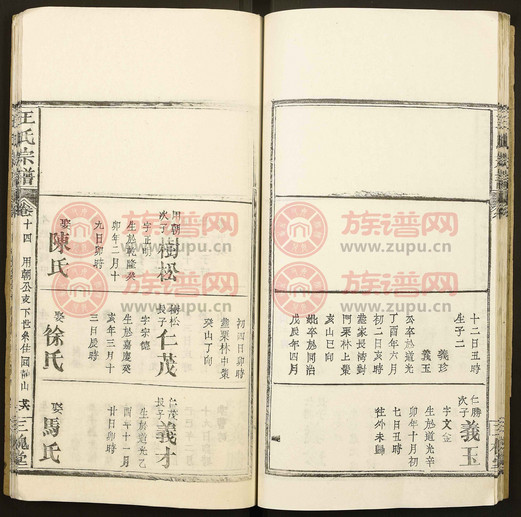 十二日丑時
生子二
義珍
義玉
卒於道光
丁酉年六月
初二日亥時
葬家長沖對
門栗林上葉
亥山巳向
妣卒於同治
戊辰年四月
仁勝
次子
義玉
字文金
生於道光辛
卯年十月初
七日丑時
往外未歸
用朝
次子
樹松
字正明
生於乾隆癸
卯年二月十
九日卯時
娶陳氏
初四日卯時
葬栗林中葉
癸山丁向
樹松
長子
仁茂
字宇德
生於嘉慶癸
亥年三月十
三日辰時
娶徐氏
仁茂
長子
義才
生於道光乙
酉年十一月
廿日卯時
娶馬氏
王氏宗譜
卷十四
用朝公支下世系住岡山
三槐堂
族谱网
www.zupu.cn
族谱网
www.zupu.cn